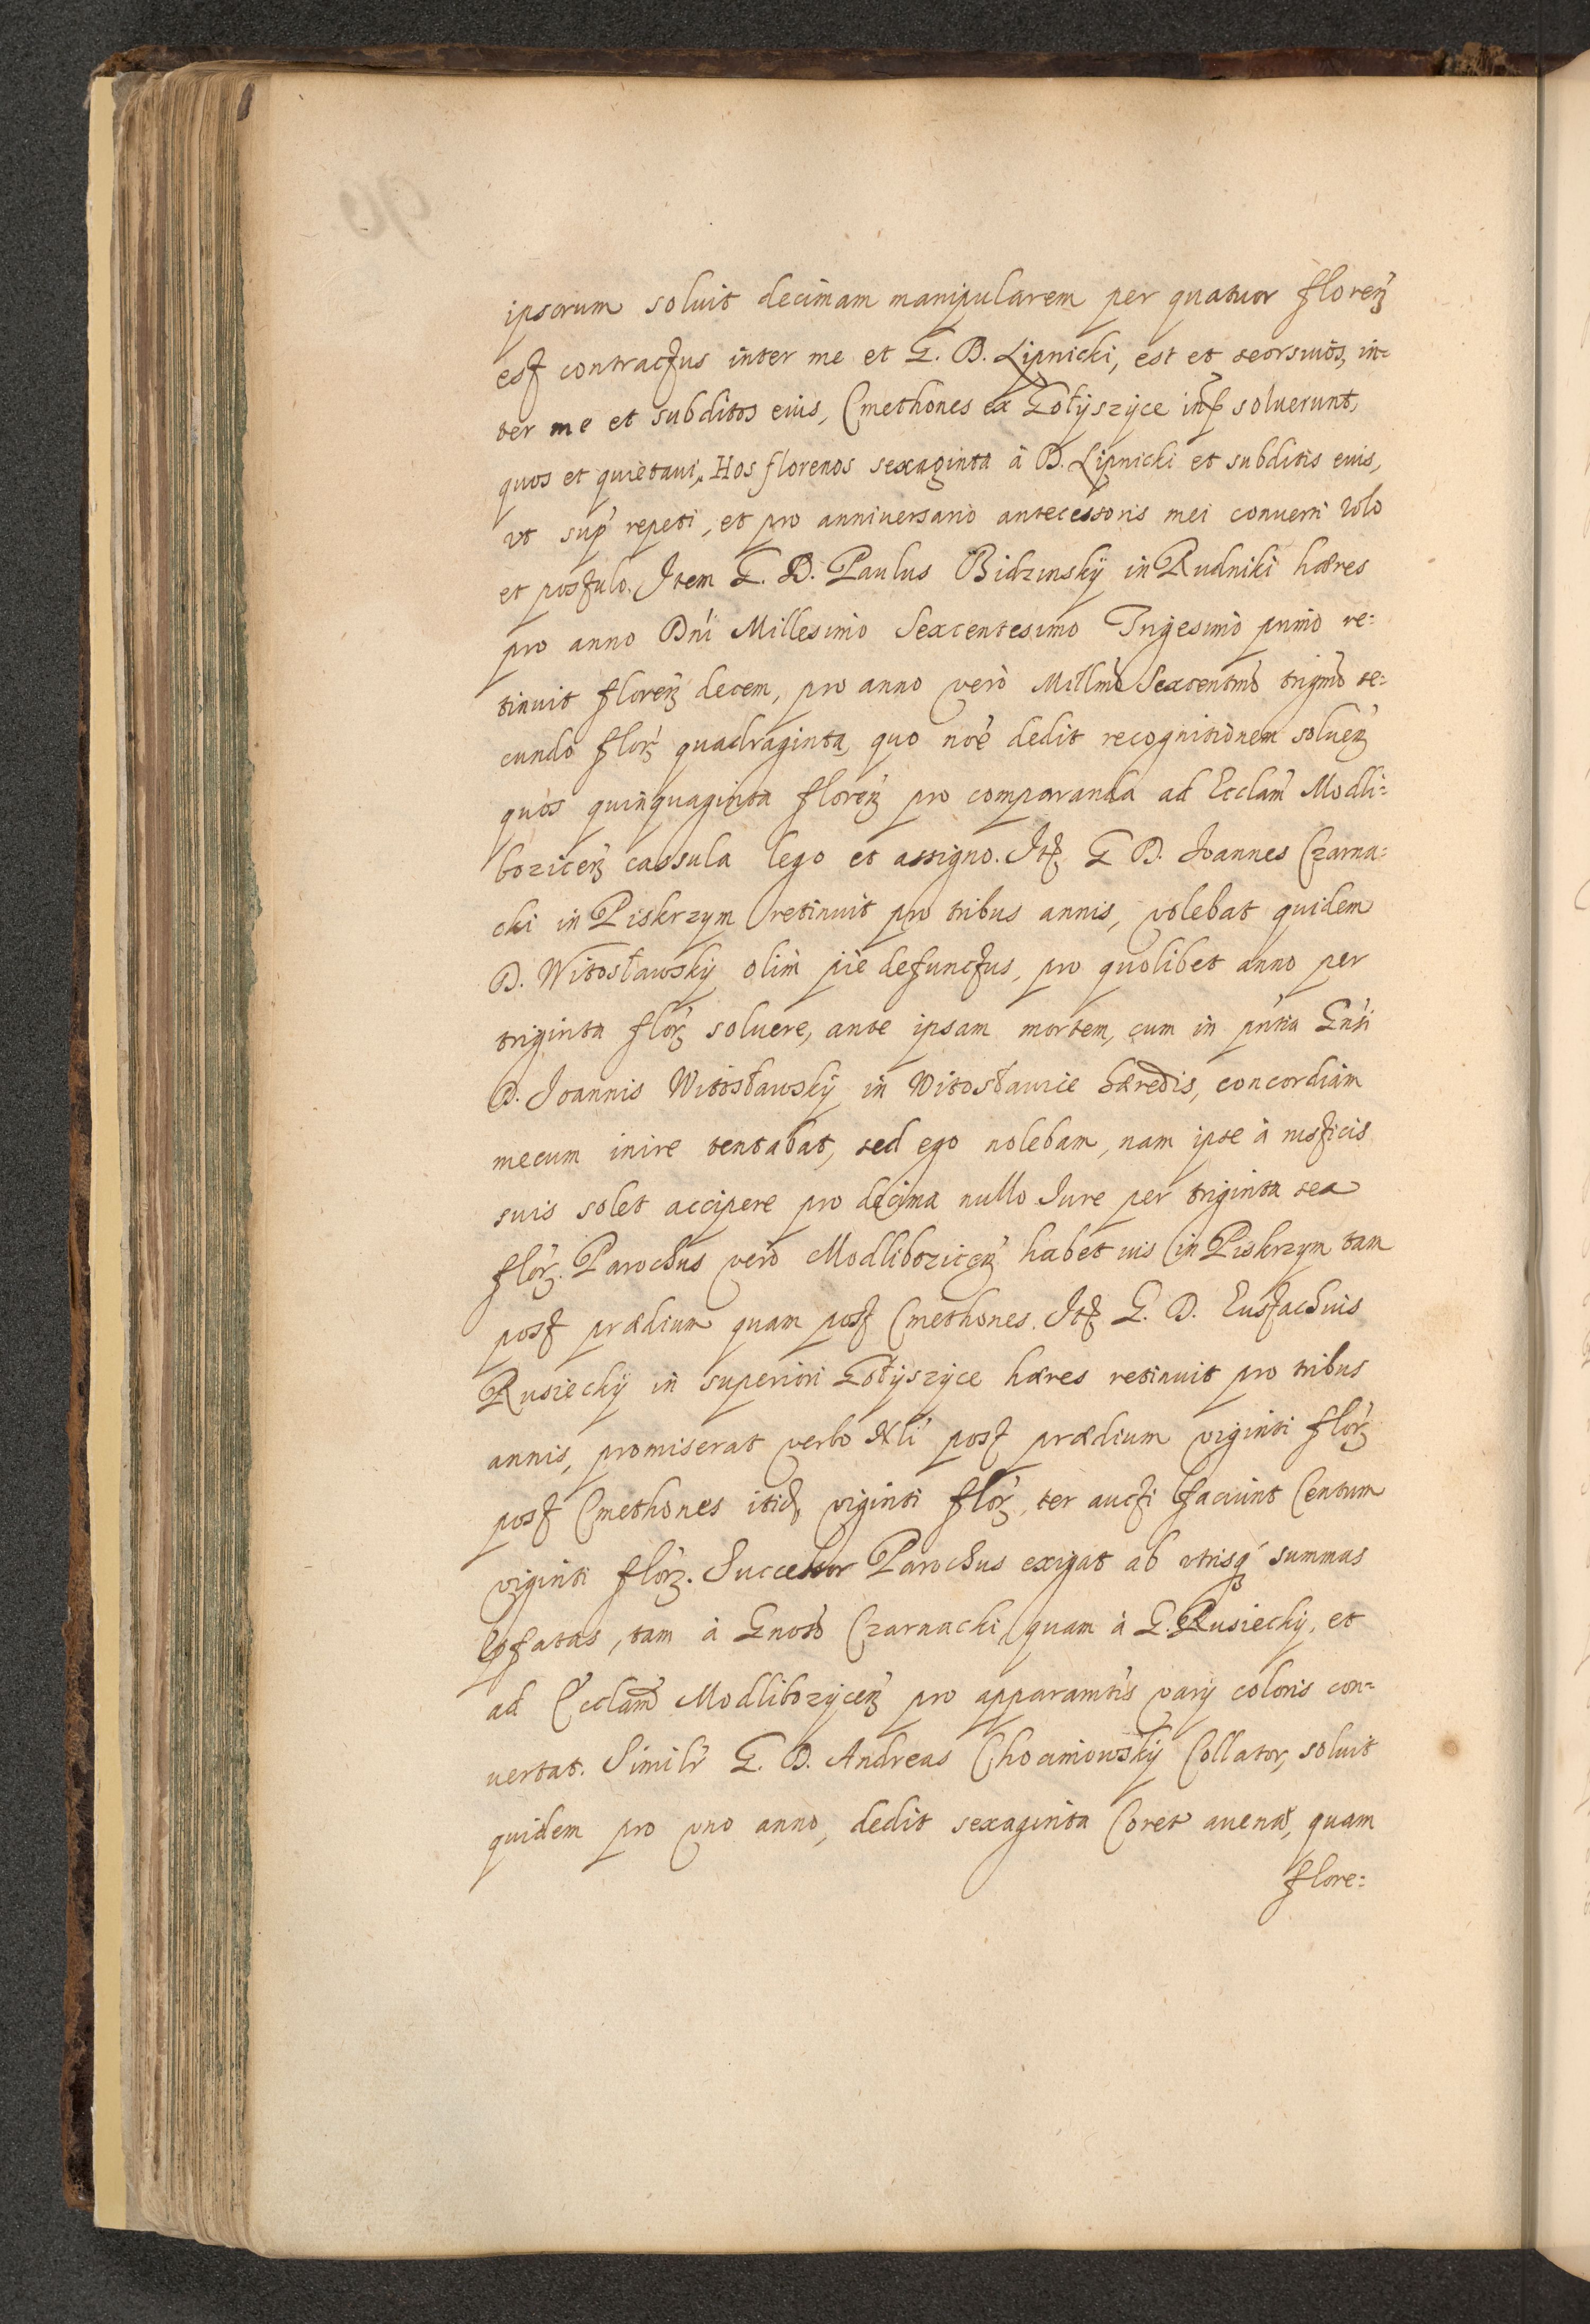 ipsorum soluit decimam manipularem per quatuor floreꝫ
est contractus inter me et G. D. Lipnicki, est et seorsiuus, in-
ter me et subditos eius, Cmethones ex Gołyszyce soluerunt,
quos et quietaui, Hos florenos sexaginta à D. Lipnicki et subditis eius,
vt sup repeti, et pro anniuersario antecessoris mei conuerti volo
et postulo. Item G. D. Paulus Bidzinskÿ in Rudniki hæres
pro anno Dni Millesimo Sexcentesimo Trigesimo primo re:
tinuit floreꝫ decem, pro anno verò Millmo Sexcentmo trigmo se:
cundo florꝫ quadraginta, quo noe dedit recognitionem solueꝫ
quos quinquaginta floreꝫ pro comparanda ad Ecclam Modli:
boziceꝫ cassula lego et assigno. Itꝫ G D. Joannes Czarna:
cki in Piskrzym retinuit pro tribus annis, volebat quidem
D. Witosławskÿ olim pie defunctus, pro quolibet anno per
triginta florꝫ soluere, ante ipsam mortem, cum in pntia Gnsi
D. Joannis Witosławskÿ in Witosławice hæredis, concordiam
mecum inire tentabat, sed ego nolebam, nam ipse à rusticis
suis solet accipere pro decima nullo Jure per triginta sex
florꝫ. Parochus verò Modliboziceꝫ habet ius in Piskrzym tam
post prædium quam post Cmethones. Itꝫ G. D. Eustachius
Rusieckÿ in superiori Gołyszyce hæres retinuit pro tribus
annis, promiserat verbo Nli post prædium viginti florꝫ
post Cmethones itid viginti florꝫ, ter aucti faciunt Centum
viginti florꝫ. Successor Parochus exigat ab vtrisqꝫ summas
pfatas, tam à Gnoso Czarnacki quam à G. Rusieckÿ, et
ad Ecclam Modlibozÿceꝫ pro apparamtis varÿ coloris con-
uertat. Similr G. D. Andreas Chociniowskÿ Collator, soluit
quidem pro vno anno, dedit sexaginta Coret auenæ, quam
flore: